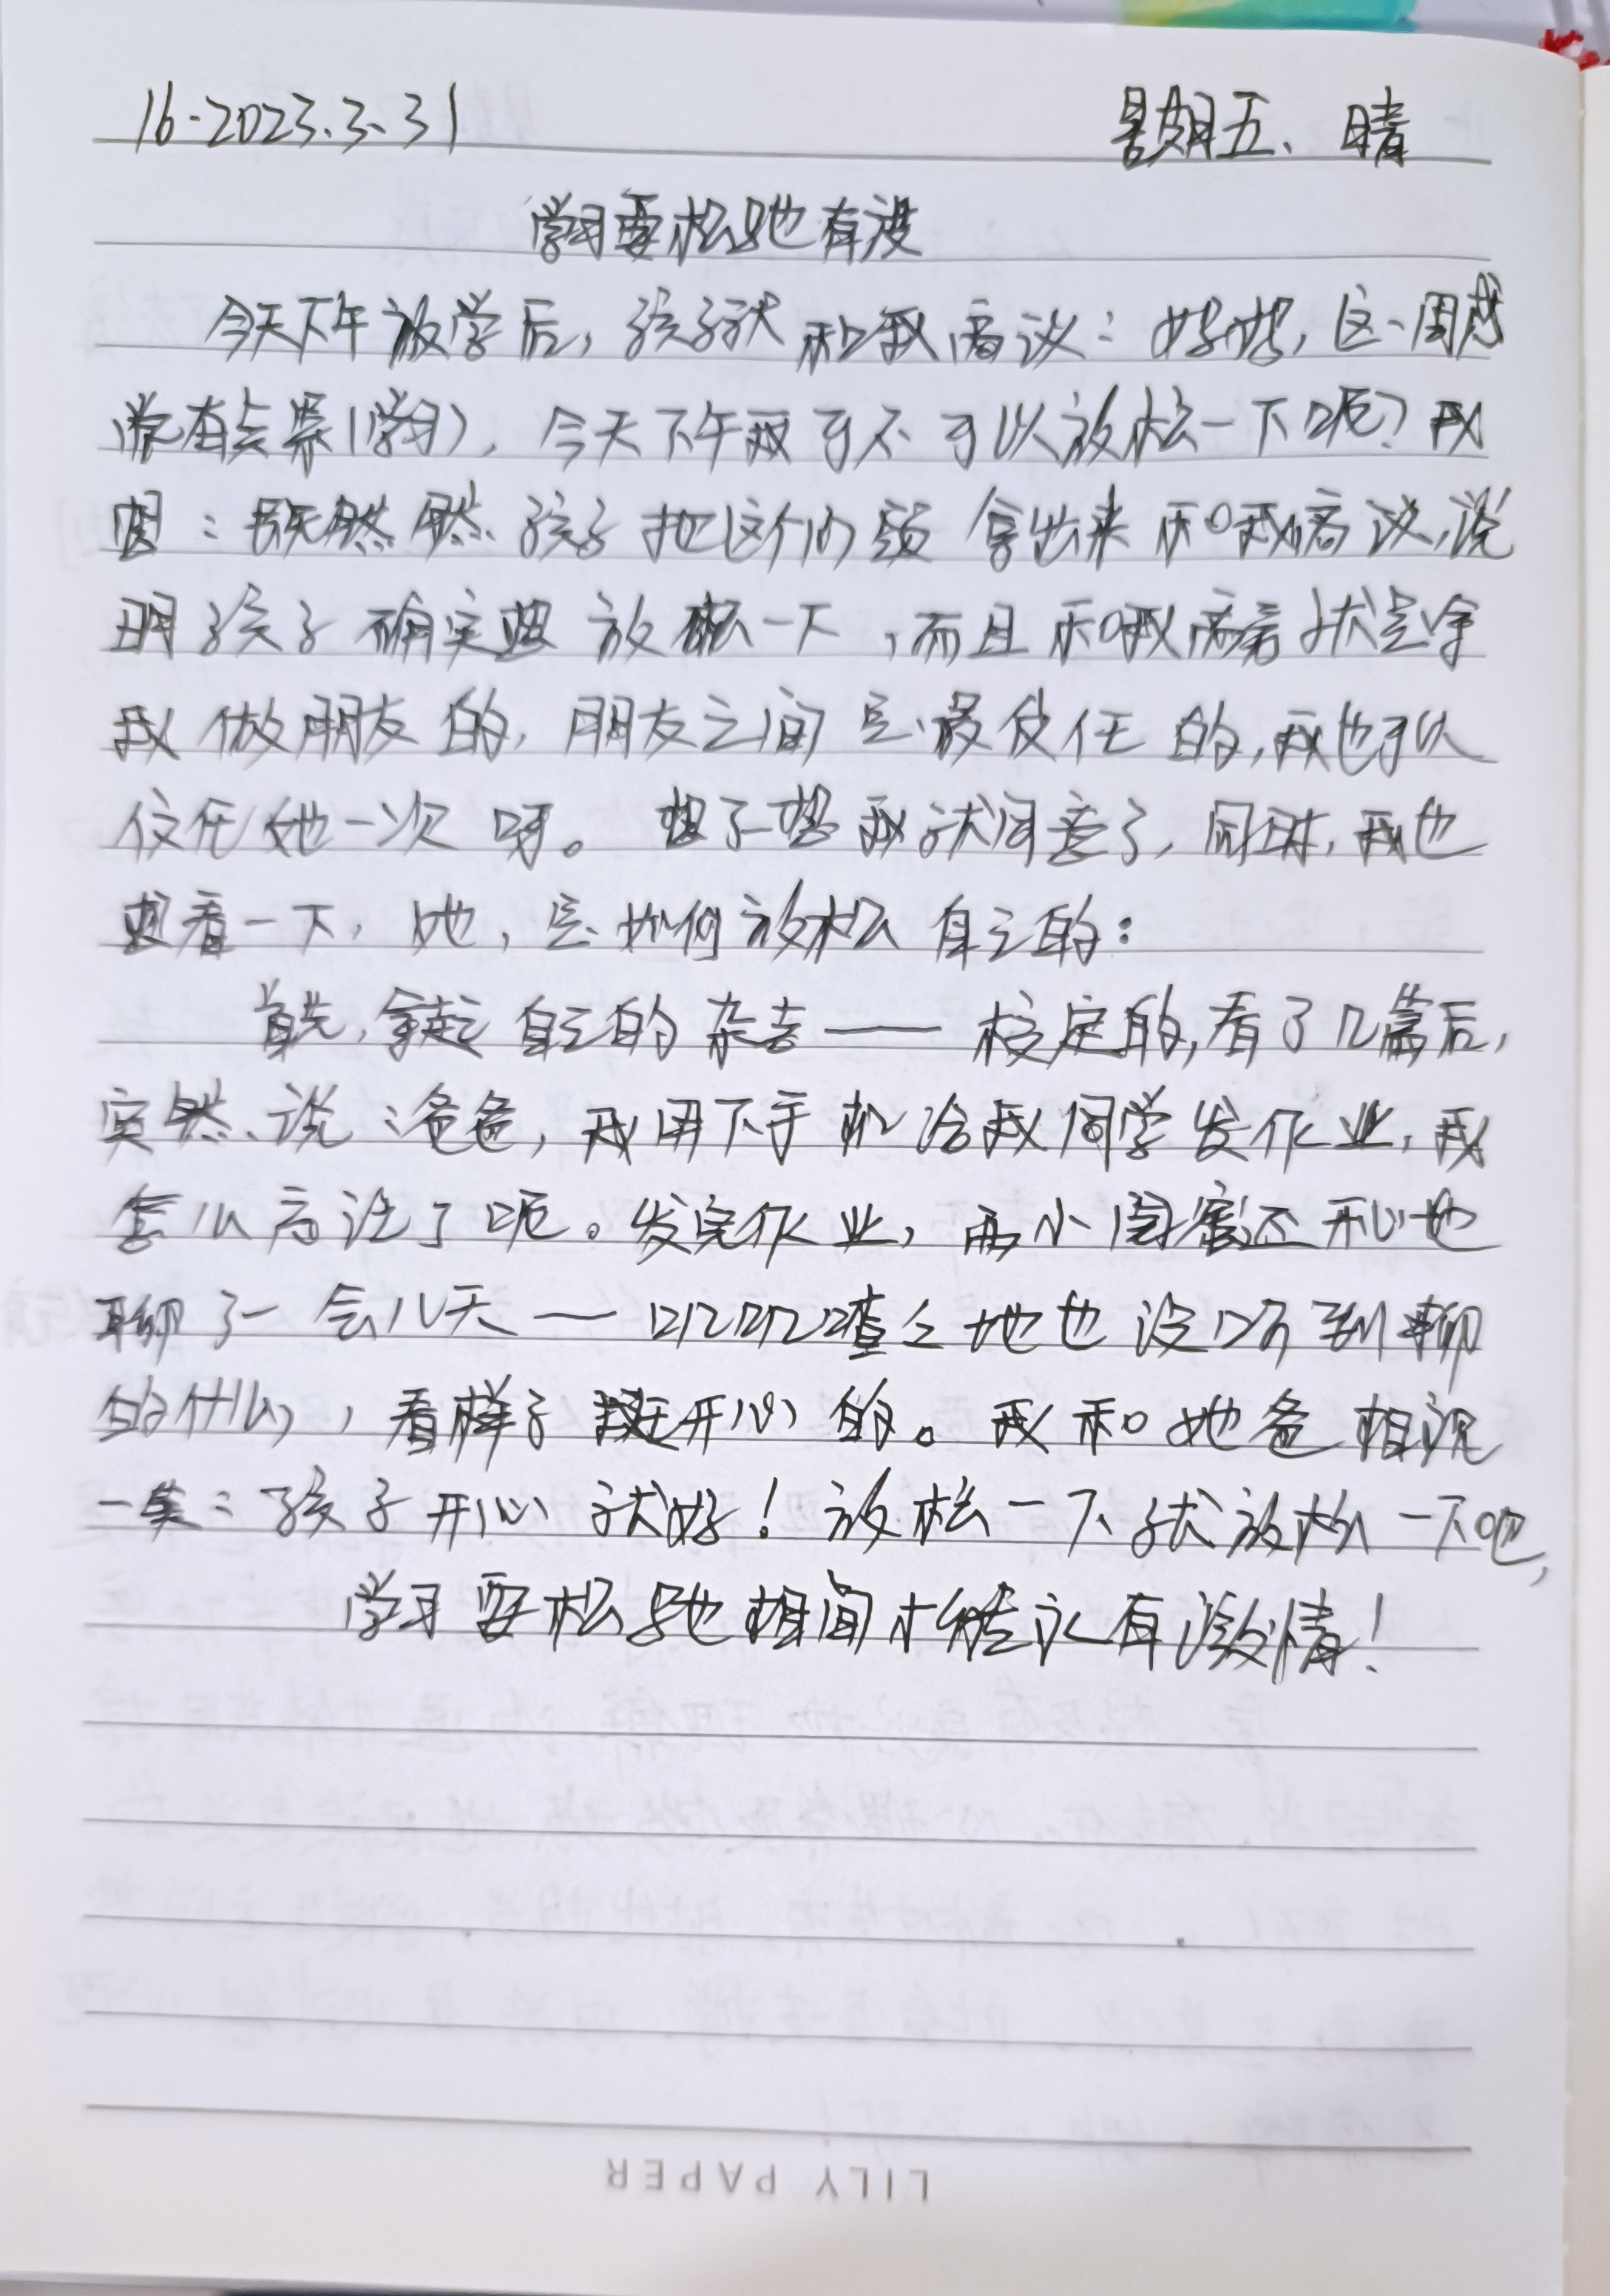 16-2023.3.31 星期五、晴
学习要松弛有度
今天下午放学后，孩子就和我商议：妈妈，这一周感
觉有点累（学习），今天下午我可不可以放松一下呢？我
想：既然然孩子把这个问题拿出来和我商议，说
明孩子确实想放松一下，而且和我商议就是拿
我做朋友的，朋友之间是最信任的，我也可以
信任她一次呀。想了一想我就同意了，同时，我也
想看一下，她，是如何放松自己的：
首先，拿起自己的杂志——校定的，看了几篇后，
突然说：爸爸，我用下手机给我同学发作业，我
怎么忘记了呢。发完作业，两小闺蜜还开心地
聊了一会儿天——叽叽叽喳喳地也没听到聊
的什么，看样子挺开心的。我和她爸相视
一笑：孩子开心就好！放松一下就放松一下吧，
学习要松弛相间才能永有激情！
LILY PAPER